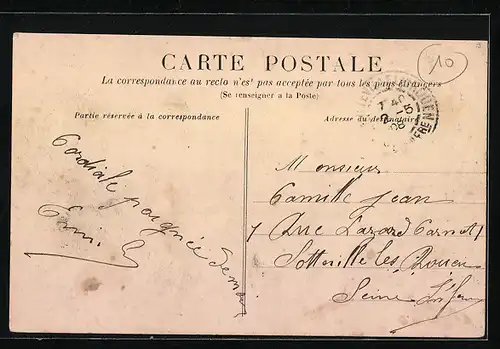 10
CARTE POSTALE
La correspondance au recto n'est pas acceptée par tous les pays étrangers
(Se renseigner à la Poste)
Partie réservée à la correspondance
Adresse du destinataire
Cordiale poignée de main
Monsieur
Camille Jean
7 Rue Lazard Carnot
Sotteville les Rouen
Seine Infre